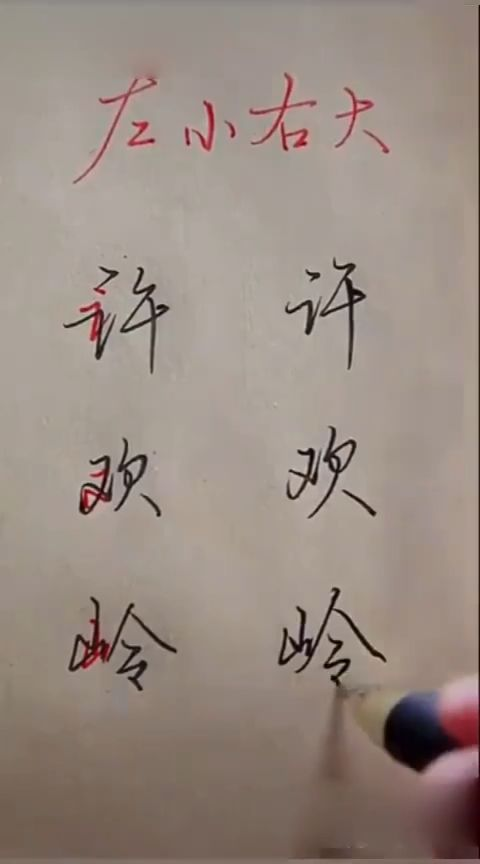 左小右大
許 许
欢 欢
岭 岭